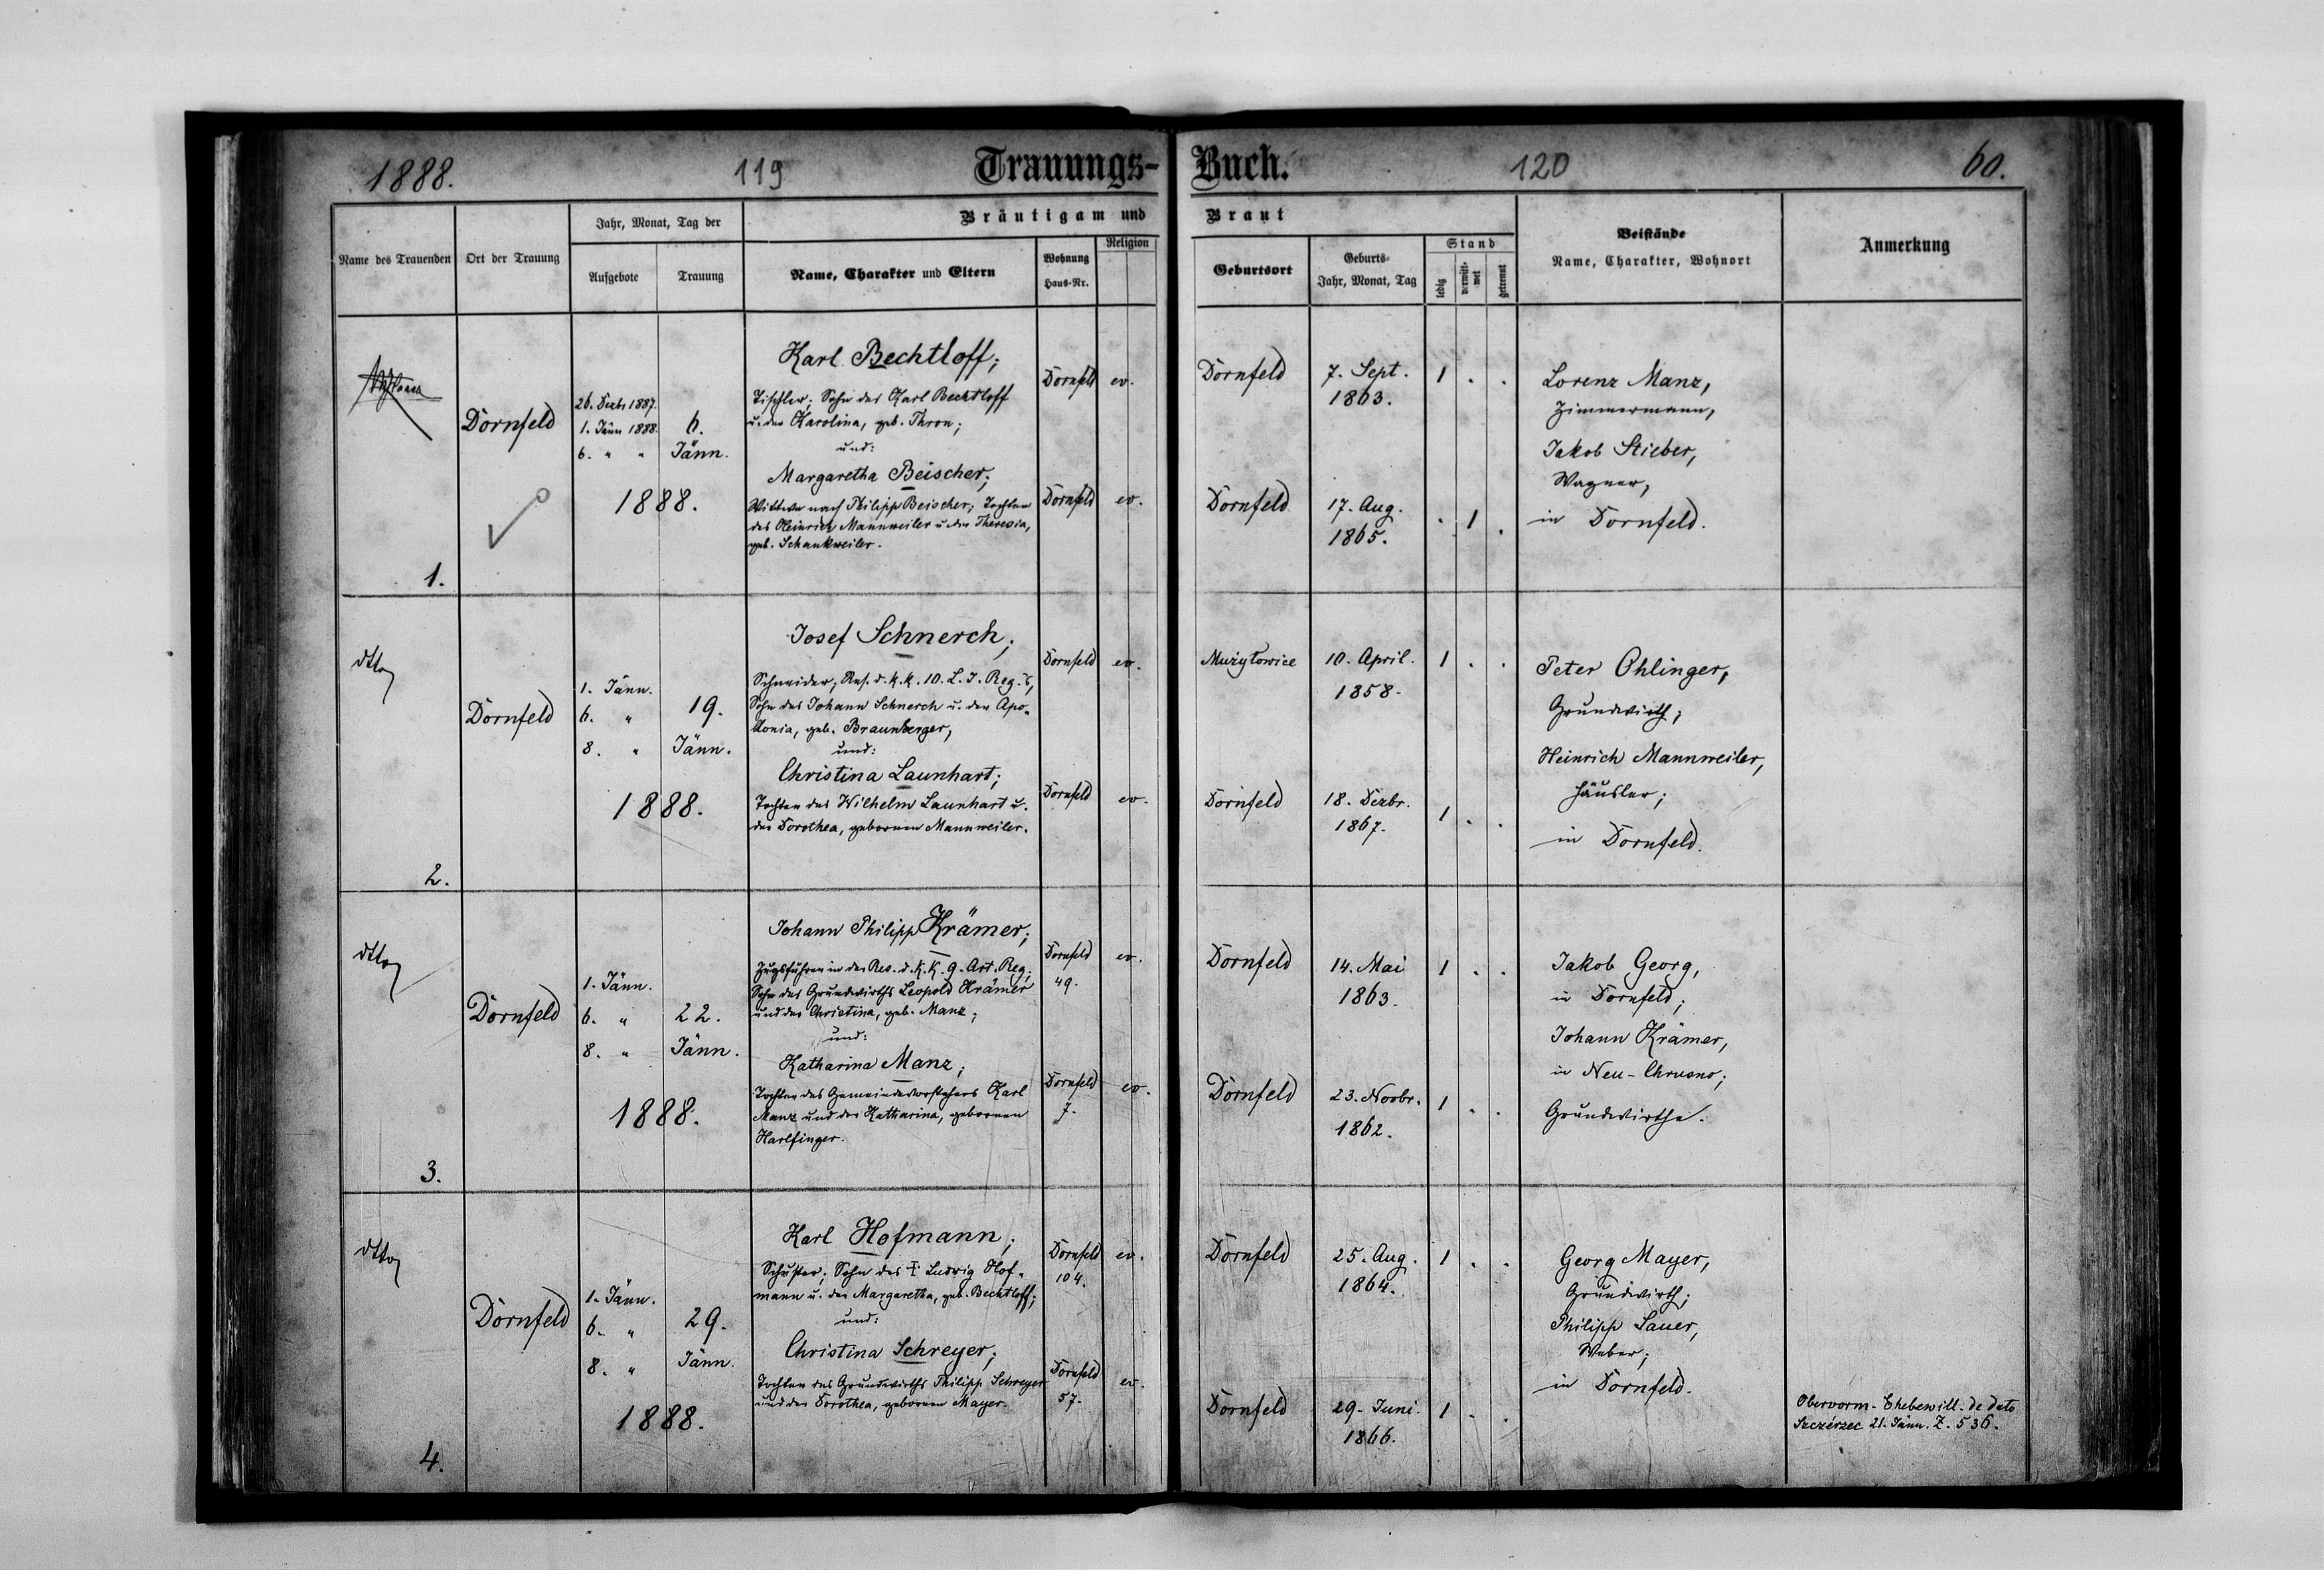 1888.
119
Trauungs-
Buch.
120
60.
Name des Trauenden
Ort der Trauung
Jahr, Monat, Tag der
Aufgebote
Trauung
Bräutigam und
Braut
Name, Charakter und Eltern
Wohnung
Haus-Nr.
Religion
Geburtsort
Geburts-
Jahr, Monat, Tag
Stand
ledig
verwitt-
wet
getrennt
Beistände
Name, Charakter, Wohnort
Anmerkung
Dornfeld
26. Dezbr 1887.
1. Jänn 1888.
6. " "
6.
Jänn.
1888.
Karl Bechtloff;
Tischler; Sohn des Karl Bechtloff
u. der Karolina, geb. Thron;
und:
Margaretha Beischer;
Wittwe nach Philipp Beischer; Tochter
des Heinrich Mannweiler u. der Theresia,
geb. Schankweiler.
Dornfeld ev.
Dornfeld ev.
Dornfeld
7. Sept.
1863.
1 . .
Dornfeld
17. Aug.
1865.
. 1 .
Lorenz Manz,
Zimmermann,
Jakob Stieber,
Wagner,
in Dornfeld.
1.
dtto
Dornfeld
1. Jänn.
6. "
8. "
19.
Jänn.
1888.
Josef Schnerch;
Schneider; Res. d. k. k. 10. L. I. Reg.'s,
Sohn des Johann Schnerch u. der Apo-
llonia, geb. Braunberger,
und:
Christina Launhart;
Tochter des Wilhelm Launhart u.
der Dorothea, gebornen Mannweiler.
Dornfeld ev.
Dornfeld ev.
Mużyłowice
10. April.
1858.
1 . .
Dornfeld
18. Dezbr.
1867.
1 . .
Peter Ohlinger,
Grundwirth;
Heinrich Mannweiler,
Häusler;
in Dornfeld.
2.
dtto
Dornfeld
1. Jänn.
6. "
8. "
22.
Jänn.
1888.
Johann Philipp Krämer;
Zugsführer in der Res. d. k. k. 9. Art. Reg.;
Sohn des Grundwirths Leopold Krämer
und der Christina, geb. Manz;
und:
Katharina Manz;
Tochter des Gemeindevorstehers Karl
Manz und der Katharina, gebornen
Harlfinger.
Dornfeld ev.
49.
Dornfeld ev.
7.
Dornfeld
14. Mai
1863.
1 . .
Dornfeld
23. Novbr.
1862.
1 . .
Jakob Georg,
in Dornfeld;
Johann Krämer,
in Neu-Chrusno;
Grundwirthe.
3.
dtto
Dornfeld
1. Jänn.
6. "
8. "
29.
Jänn.
1888.
Karl Hofmann;
Schuster; Sohn des † Ludwig Hof-
mann u. der Margaretha, geb. Bechtloff;
und:
Christina Schreyer;
Tochter des Grundwirths Philipp Schreyer
und der Dorothea, gebornen Mayer.
Dornfeld ev.
104.
Dornfeld ev.
57.
Dornfeld
25. Aug.
1864.
1 . .
Dornfeld
29. Juni.
1866.
1 . .
Georg Mayer,
Grundwirth;
Philipp Sauer,
Weber;
in Dornfeld.
Obervorm. Ehebewill. de dato
Szczérzec 21. Jänn. Z. 536.
4.